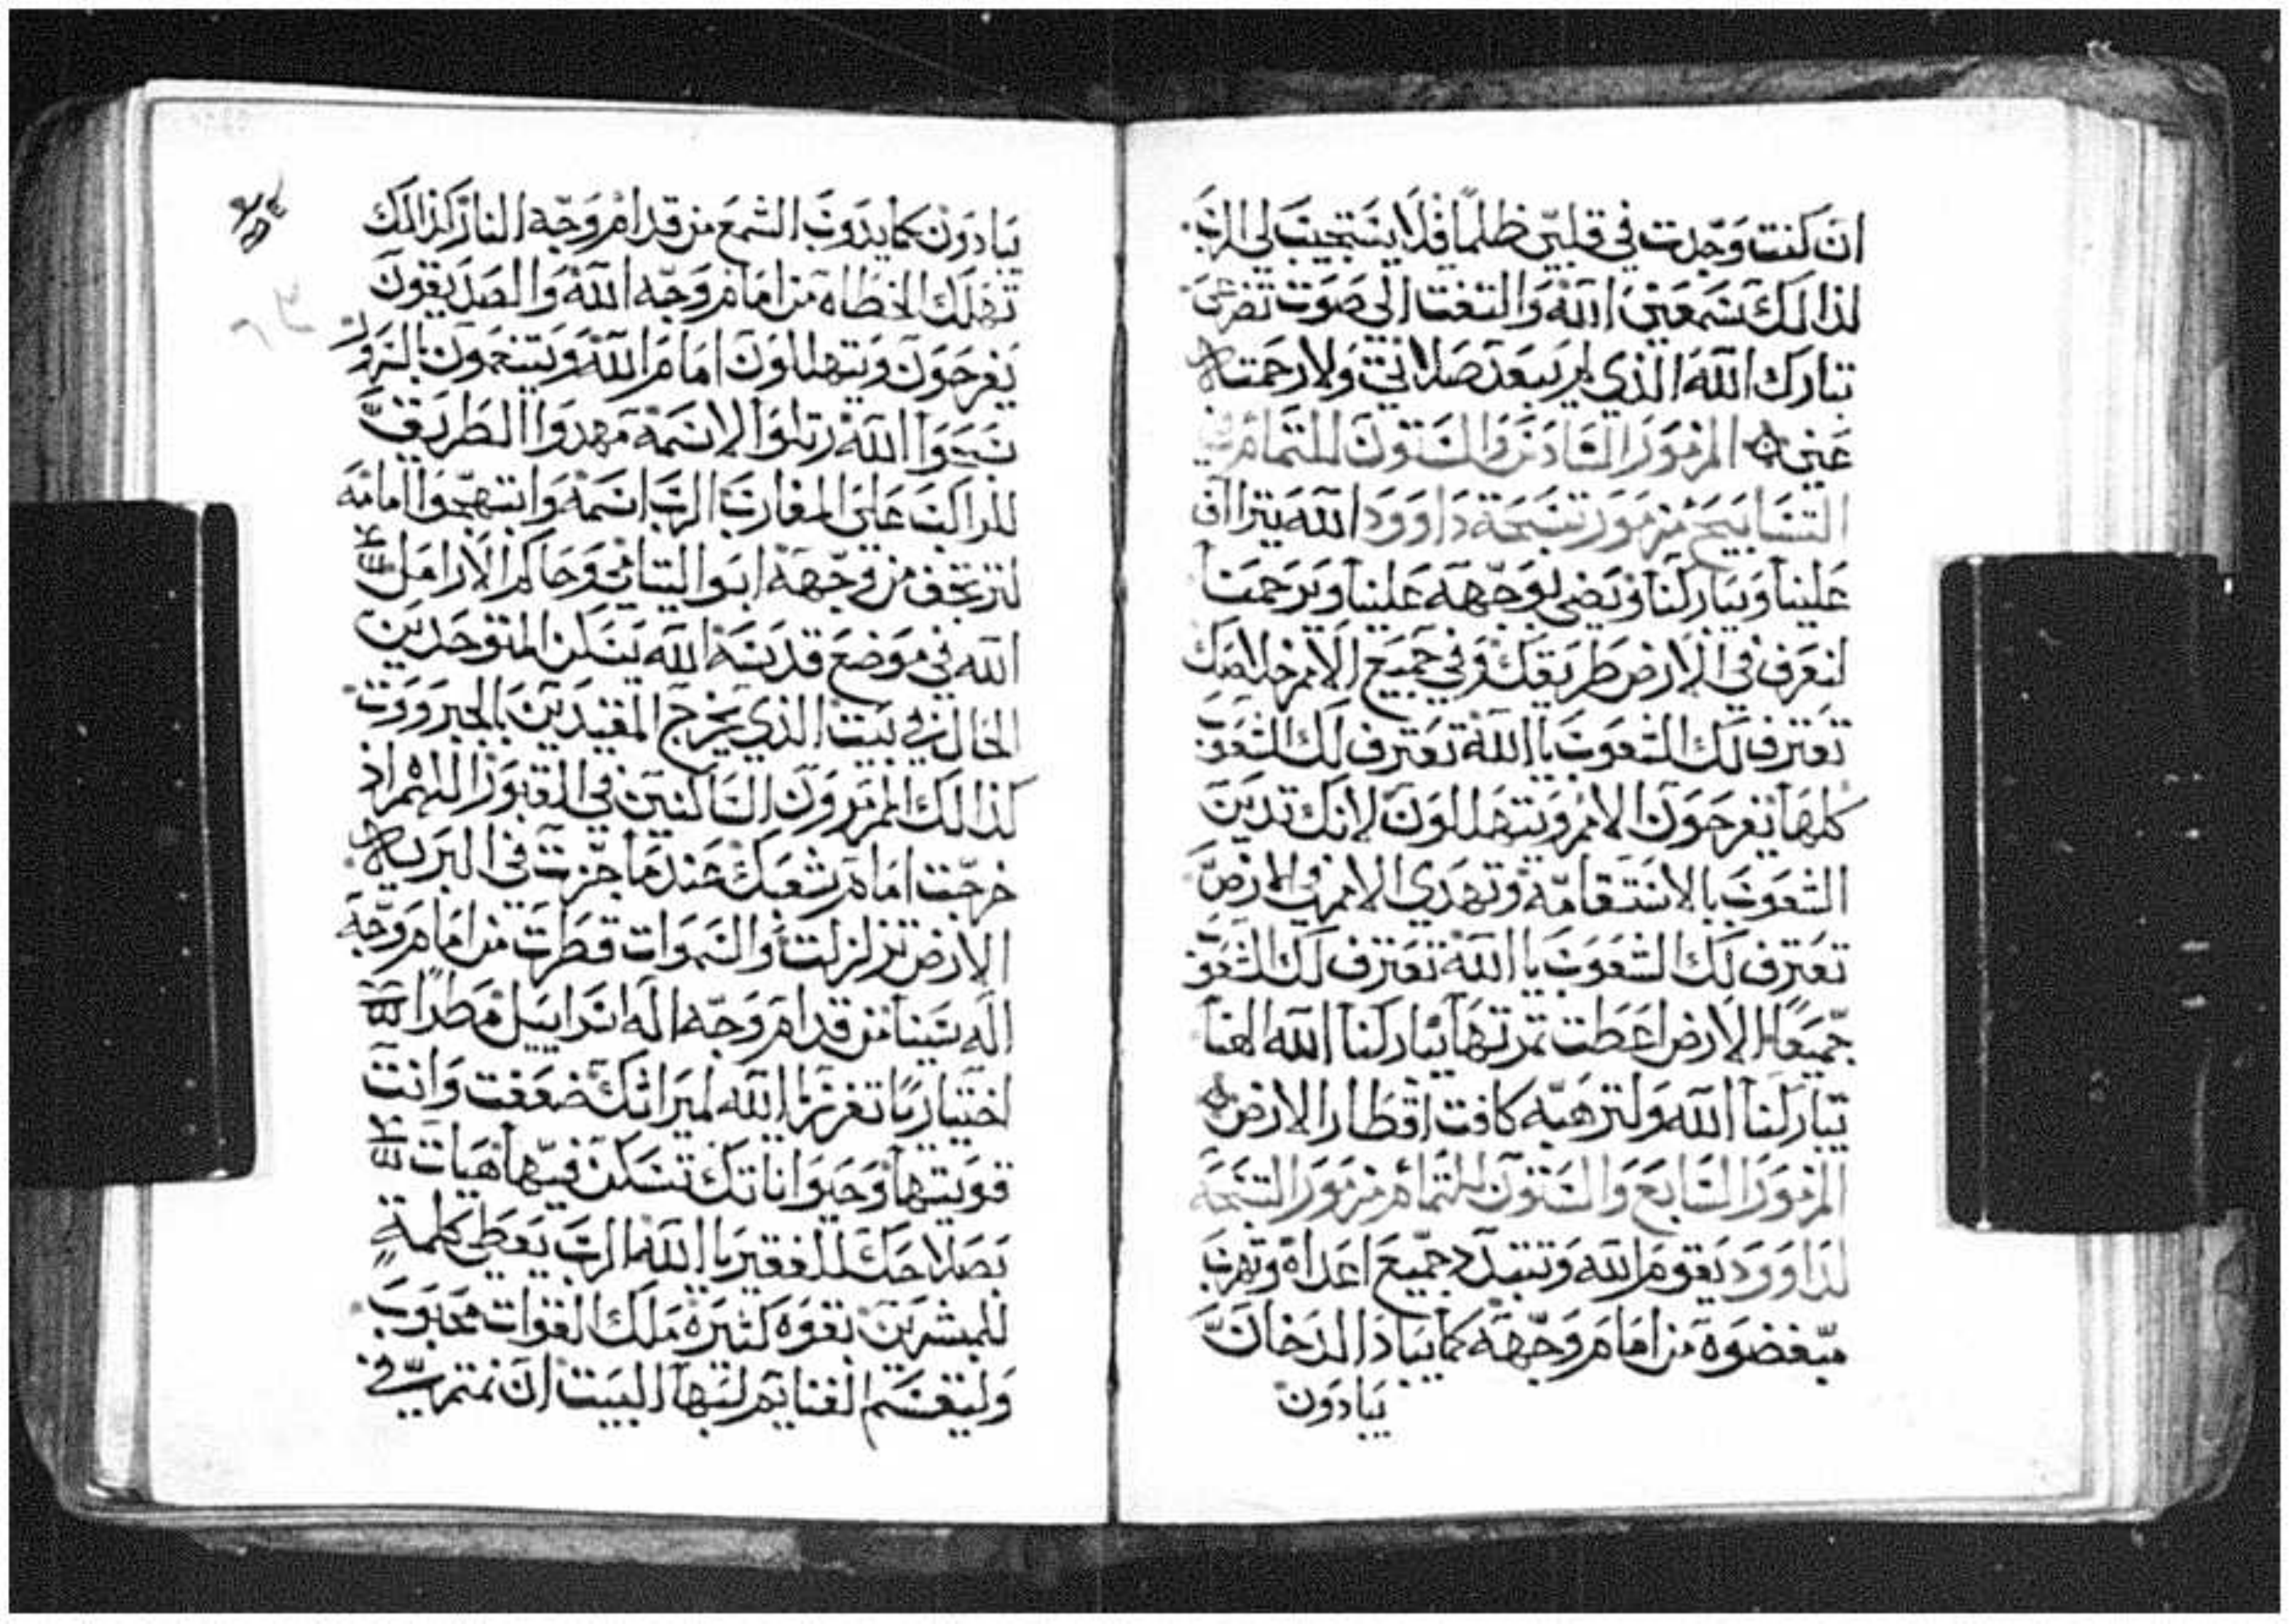 ان كنت وجدت في قلبي ظلمًا فلا يستجيب لي الرب
لذالك سمعني الله والتفت الي صوت تضرعي
تبارك الله الذي لم يبعد صلاتي ولا رحمته
عني المزمور السادس والستون للتمام في
التسابيح مزمور تسبحة داوود الله يتراآف
علينا ويباركنا ويضي بوجهه علينا ويرحمنا
لنعرف في الارض طريقك وفي جميع الامم خلاصك
تعترف لك الشعوب يا الله تعترف لك الشعوب
كلها يفرحون الامم ويتهللون لانك تدين
الشعوب بالاستقامة وتهدي الامم في الارض
تعترف لك الشعوب يا الله تعترف لك الشعوب
جميعًا الارض اعطت ثمرتها يباركنا الله الهنا
يباركنا الله ولترهبه كافت اقطار الارض
المزمور السابع والستون للتمام مزمور التسبحة
لداوود يقوم الله وتتبدد جميع اعداه وتهرب
مبغضوه من امام وجهه كما يباد الدخان
يبادون
يبادون كما يدوب الشمع من قدام وجه النار كذالك
تهلك الخطاه من امام وجه الله والصديقون
يفرحون ويتهللون امام الله ويتنعمون بالسرور
سبحوا الله رتلوا لاسمه مهدوا الطريق
للراكب على المغارب الرب اسمه وابتهجوا امامه
لترتجف من وجهه ابو اليتامي وحاكم الارامل
الله في موضع قدسه الله يسكن المتوحدين
الحال في بيت الذي يخرج المقيدين بالجبرووت
كذالك المرمرون الساكنين في القبور اللهم اذ
خرجت امام شعبك عندما جزت في البريه
الارض تزلزلت والسموات قطرت من امام وجه
اله سينا من قدام وجه اله اسراييل مطرًا
اختياريًا تفرز يا الله لميراثك ضعفت وانت
قويتها وحيواناتك تسكن فيها هيات
بصلاحك للفقير يا الله الرب يعطي كلمة
للمبشرين بقوه كثيره ملك القوات محبوب
وليقسم الغنايم لبها البيت ان نمتم في